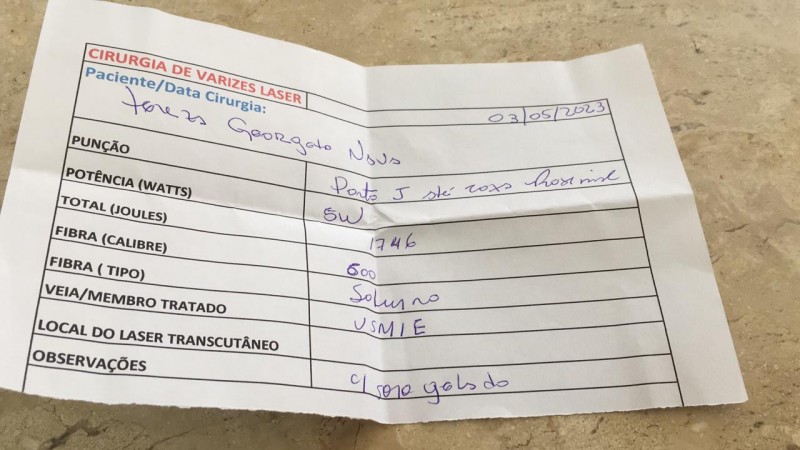 CIRURGIA DE VARIZES LASER
Paciente/Data Cirurgia: 03/05/2023
Georgato
PUNÇÃO Ponto J até coxa
POTÊNCIA (WATTS) 5W
TOTAL (JOULES) 1746
FIBRA (CALIBRE) 600
FIBRA ( TIPO)
VEIA/MEMBRO TRATADO VSMIE
LOCAL DO LASER TRANSCUTÂNEO
OBSERVAÇÕES c/ soro gelado